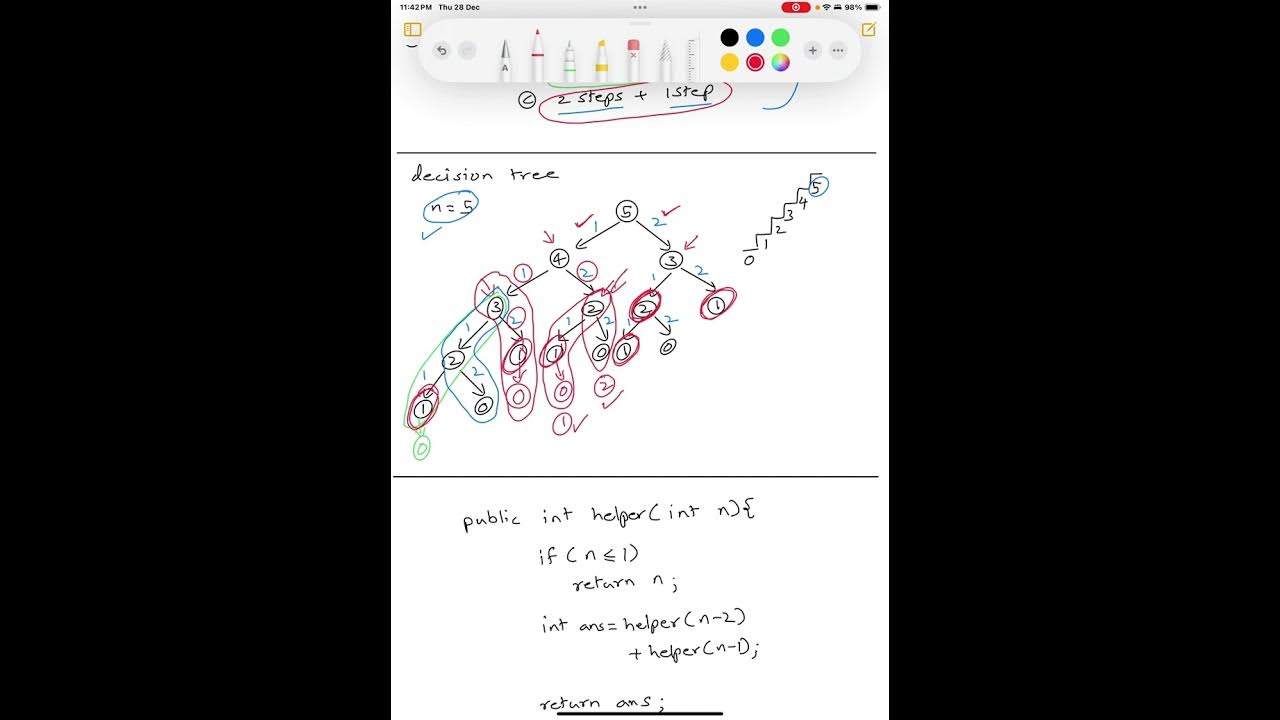 11:42 PM Thu 28 Dec
98%
A
© 2 steps + 1 step
decision tree
n = 5
5
1 2
4 3
1 2 1 2
3 2 2 1
1 2 1 2 1 2
2 1 1 0 1 0
1 2
1 0 0 0 2
0 1
5
4
3
2
1
0
public int helper( int n){
if ( n ≤ 1)
return n ;
int ans = helper( n-2)
+ helper(n-1);
return ans ;